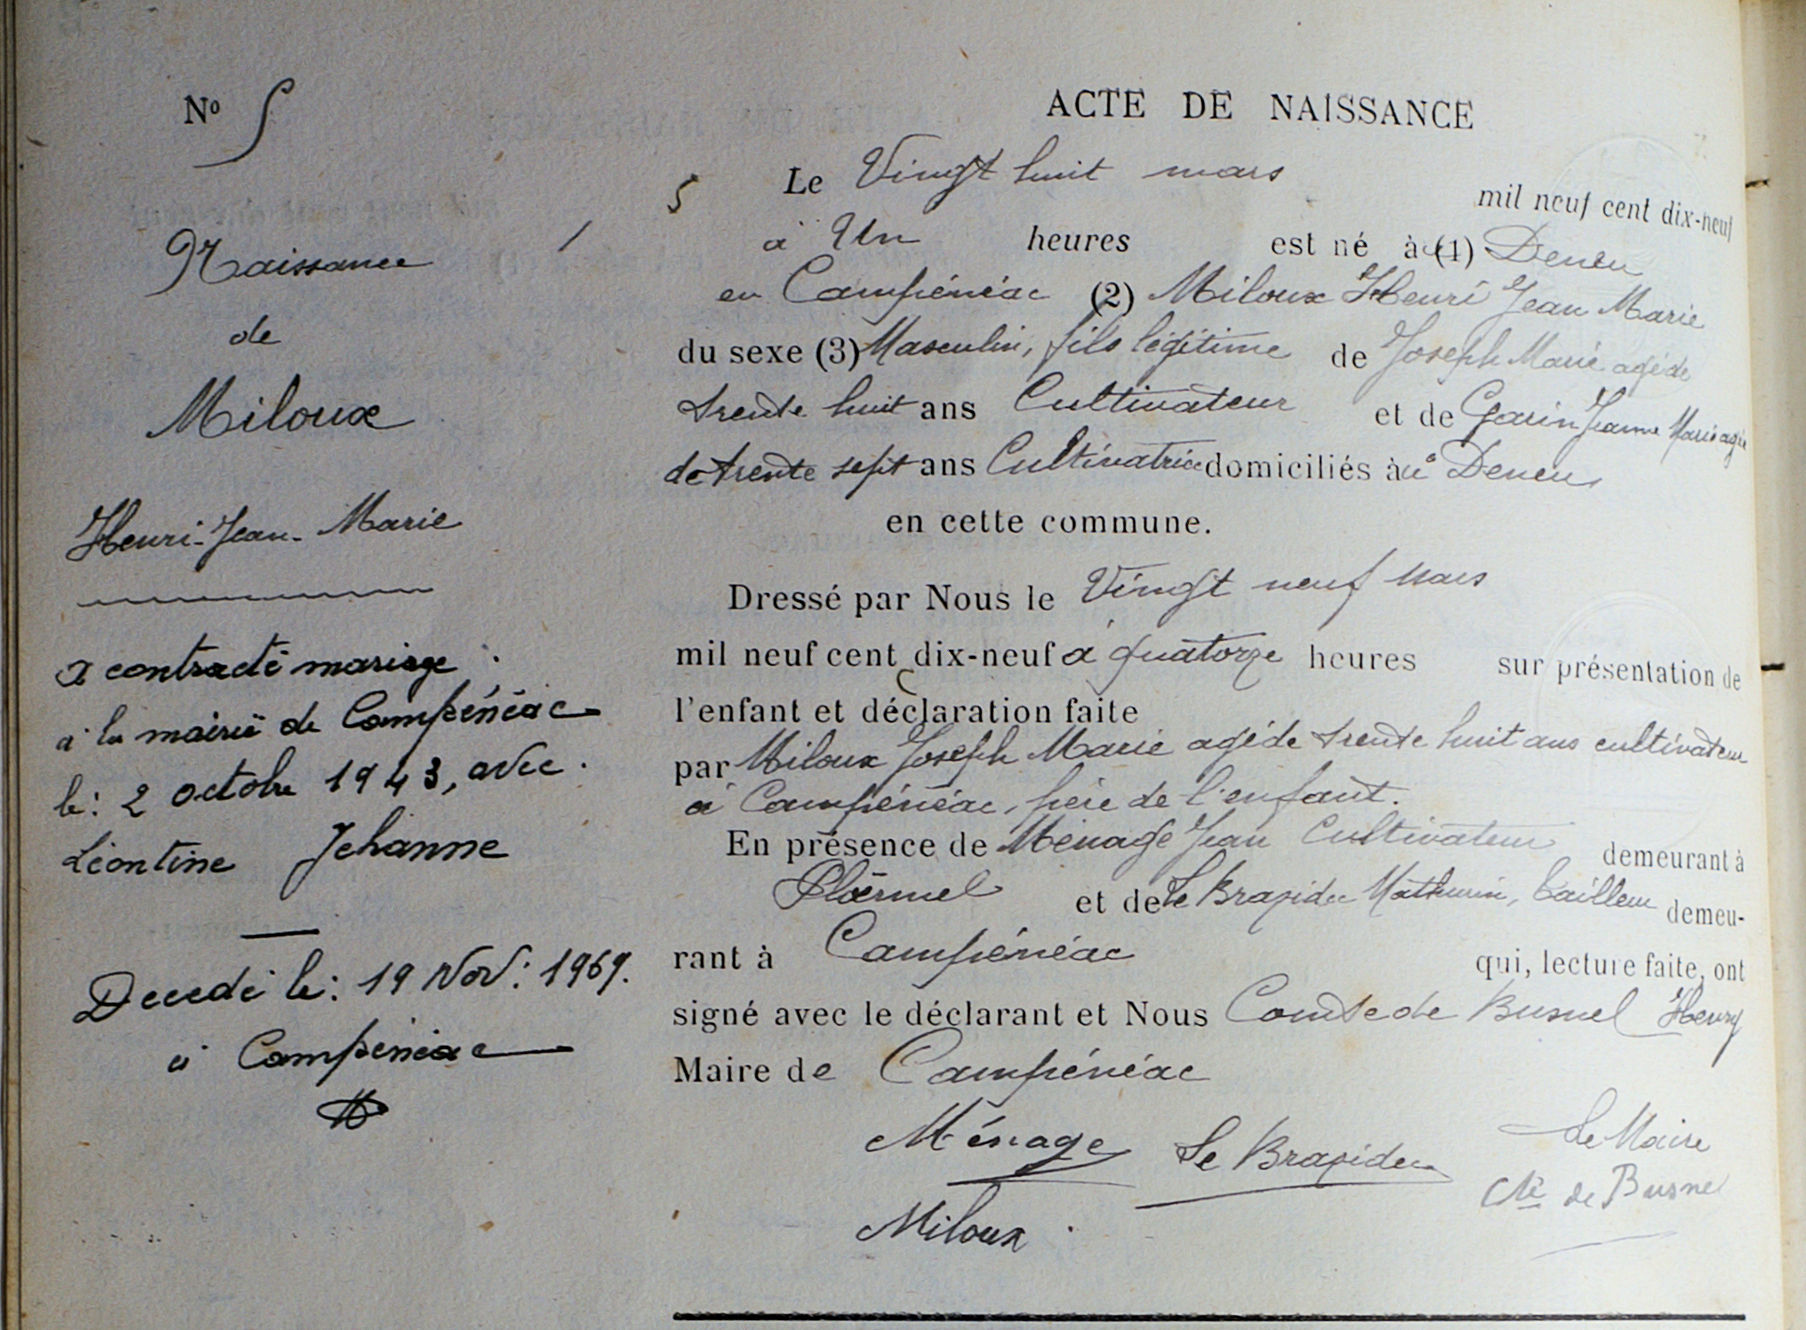 N° 5
Naissance
de
Miloux
Henri-Jean-Marie
a contracté mariage
à la mairie de Campénéac
le: 2 octobre 1943, avec
Léontine Jehanne
Decedé le: 19 Nov: 1969.
à Campénéac
ACTE DE NAISSANCE
5 Le Vingt huit mars mil neuf cent dix-neuf
à Un heures est né à (1) Deneu
en Campénéac (2) Miloux Henri Jean Marie
du sexe (3) Masculin, fils légitime de Joseph Marie agé de
trente huit ans Cultivateur et de Garin Jeanne Marie agée
de trente sept ans Cultivatrice domiciliés à Deneu
en cette commune.
Dressé par Nous le Vingt neuf Mars
mil neuf cent dix-neuf à quatorze heures sur présentation de
l'enfant et déclaration faite
par Miloux Joseph Marie agé de trente huit ans cultivateur
à Campénéac, père de l'enfant.
En présence de Ménage Jean Cultivateur demeurant à
Ploërmel et de Le Brazidec Mathurin, tailleur demeu-
rant à Campénéac qui, lecture faite, ont
signé avec le déclarant et Nous Comte de Busnel Henry
Maire de Campénéac
Ménage Le Brazidec Le Maire
Cte de Busnel
Miloux